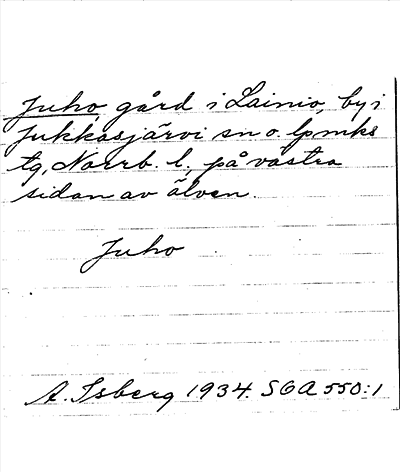 Juho, gård i Lainio, by i
Jukkasjärvi sn o. lpmks
tg, Norrb. l., på västra
sidan av älven.
Juho
A. Isberg 1934. SOA 550:1